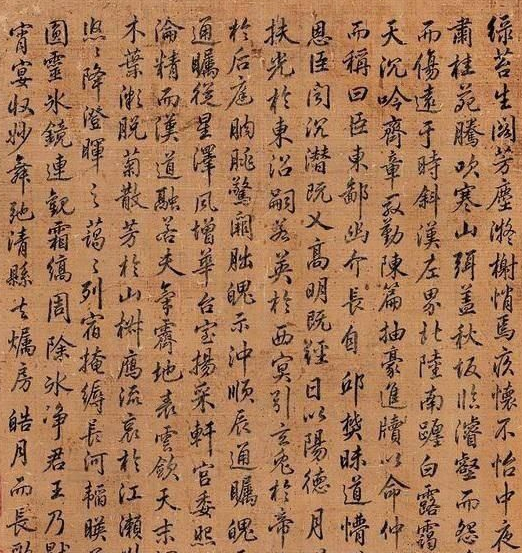 緑苔生閣芳塵凝榭悄焉疚懷不怡中夜
肅桂苑騰吹寒山弭蓋秋阪臨濬壑而怨
而傷遠于時斜漢左界北陸南躔白露靄
天沉吟齊章殷勤陳篇抽豪進牘以命仲
而稱曰臣東鄙幽介長自邱樊昧道懵
恩臣閲沉潛既乂高明既經日以陽德月
扶光於東沼嗣若英於西冥引玄兔於帝
於后庭朒朓驚闕朏魄示沖順辰通矚魄
通矚從星澤風增華台室揚采軒宮委照
淪精而漢道融若夫氣霽地表雲斂天末
木葉微脫菊散芳於山椒雁流哀於江瀨
悠々降澄暉之藹々列宿掩縟長河韜映
圓靈水鏡連觀霜縞周除冰净君王乃
宵宴收妙舞弛清縣去燭房皓月而長歌